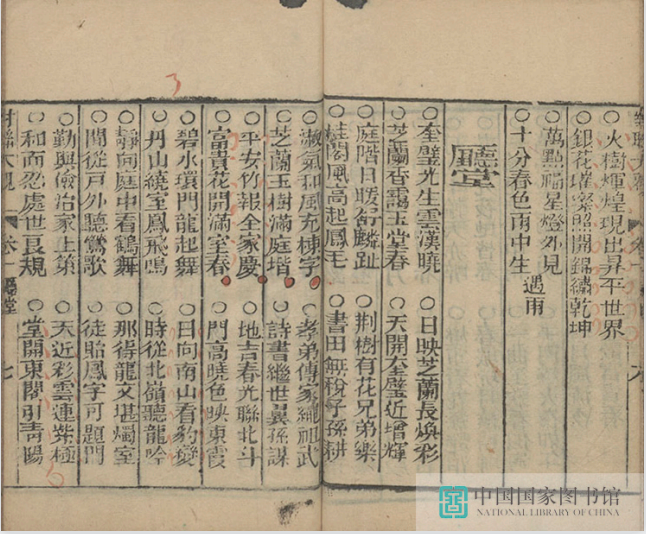 ○火樹輝煌現出昇平世界
○銀花璀璨照開錦繡乾坤
○萬點福星燈外見
遇雨
○十分春色雨中生
廳堂
○奎璧光生雲漢曉 ○日映芝蘭長煥彩
○芝蘭香靄玉堂春 ○天開奎璧近增輝
○庭階日暖徵麟趾 ○荆樹有花兄弟樂
○桂閣風高起鳳毛 ○書田無稅子孫耕
○淑氣和風充棟宇 ○孝弟傳家繩祖武
○芝蘭玉樹滿庭堦 ○詩書繼世翼孫謀
○平安竹報全家慶 ○地吉春光聯北斗
○富貴花開滿室春 ○門高曉色映東霞
○碧水環門龍起舞 ○日向南山看豹變
○丹山繞室鳳飛鳴 ○時從北嶺聽龍吟
○靜向庭中看鶴舞 ○那得龍文堪燭室
○閒從戶外聽鶯歌 ○徒貽鳳字可題門
○勤與儉治家上策 ○天近彩雲連紫極
○和而忍處世良規 ○堂開東閣引青陽
對聯大觀 卷一 廳堂 七
中国国家图书馆
NATIONAL LIBRARY OF CHINA